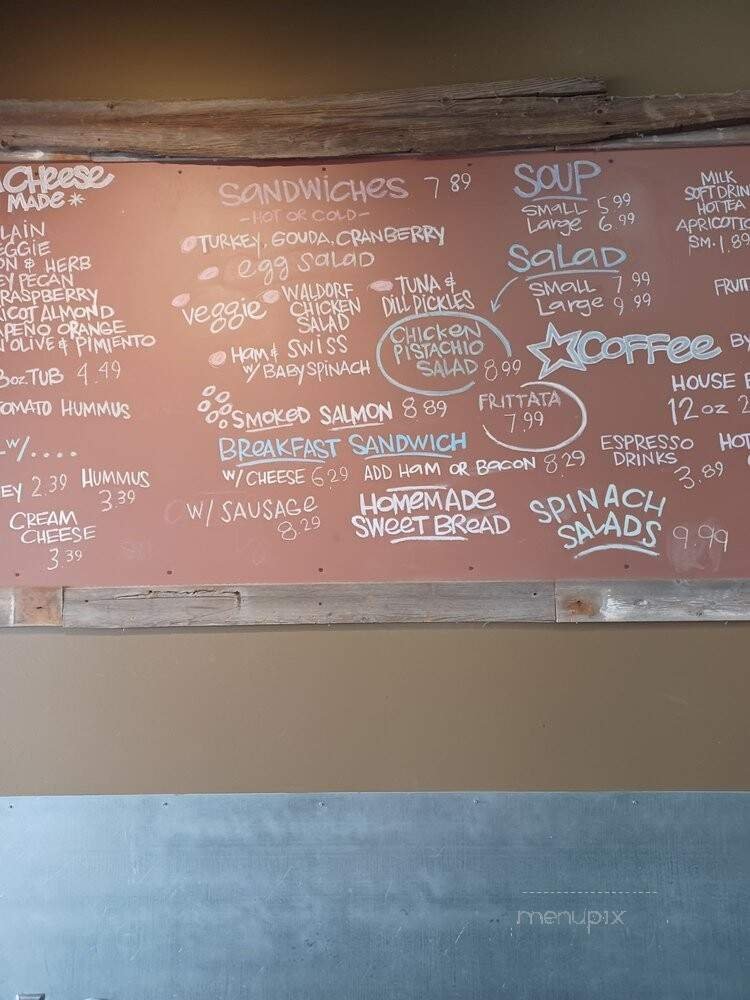 Cheese
MADE*
LAIN
EGGIE
ON & HERB
EY PECAN
RASPBERRY
ICOT ALMOND
APEÑO ORANGE
N OLIVE & PIMIENTO
8oz TUB 4.49
TOMATO HUMMUS
w/....
EY 2.39 HUMMUS
3.39
CREAM
CHEESE
3.39
SANDWICHES 7 89
-HOT OR COLD-
TURKEY, GOUDA, CRANBERRY
egg SALAD
veggie
WALDORF
CHICKEN
SALAD
TUNA &
DILL PICKLES
HAM & SWISS
W/ BABY SPINACH
CHICKEN
PISTACHIO
SALAD 8.99
SMOKED SALMON 8 89
BREAKFAST SANDWICH
W/ CHEESE 6 29 ADD HAM OR BACON 8.29
W/ SAUSAGE
8.29
HOMEMADE
SWEET BREAD
SOUP
SMALL 5 99
Large 6.99
SALAD
SMALL 7.99
Large 9 99
COFFEE BY
FRITTATA
7.99
HOUSE B
12 oz 2
ESPRESSO
DRINKS
3.89
HOT
SPINACH
SALADS 9.99
MILK
SOFT DRIN
HOT TEA
APRICOT
SM. 1.89
FRUIT
menupix